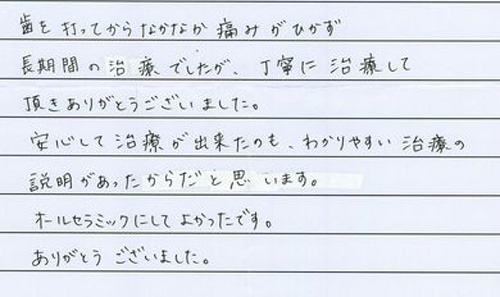 歯を打ってからなかなか痛みがひかず
長期間の治療でしたが、丁寧に治療して
頂きありがとうございました。
安心して治療が出来たのも、わかりやすい治療の
説明があったからだと思います。
オールセラミックにしてよかったです。
ありがとうございました。